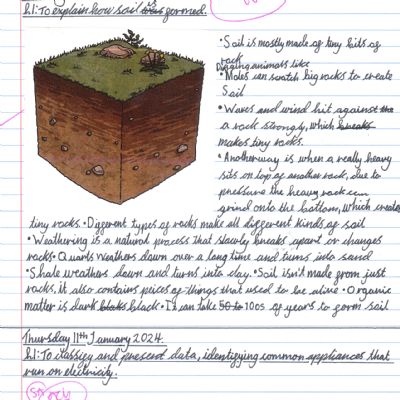 L.I: To explain how soil is formed.
• Soil is mostly made of tiny bits of
rock
digging animals like
• Moles can scratch big rocks to create
Soil
• Waves and wind hit against the
a rock strongly, which breaks
makes tiny rocks.
• Another way is when a really heavy
sits on top of another rock, due to
pressure the heavy rock can
grind onto the bottom, which creates
tiny rocks. • Different types of rocks make all different kinds of soil
• Weathering is a natural process that slowly breaks apart or changes
rocks • Quarts weathers down over a long time and turns into sand
• Shale weathers down and turns into clay. • Soil isn't made from just
rocks, it also contains peices of things that used to be alive • Organic
matter is dark black black • It can take 50 to 100s of years to form soil
Thursday 11th January 2024.
L.I: To classify and present data, identifying common appliances that
run on electricity.